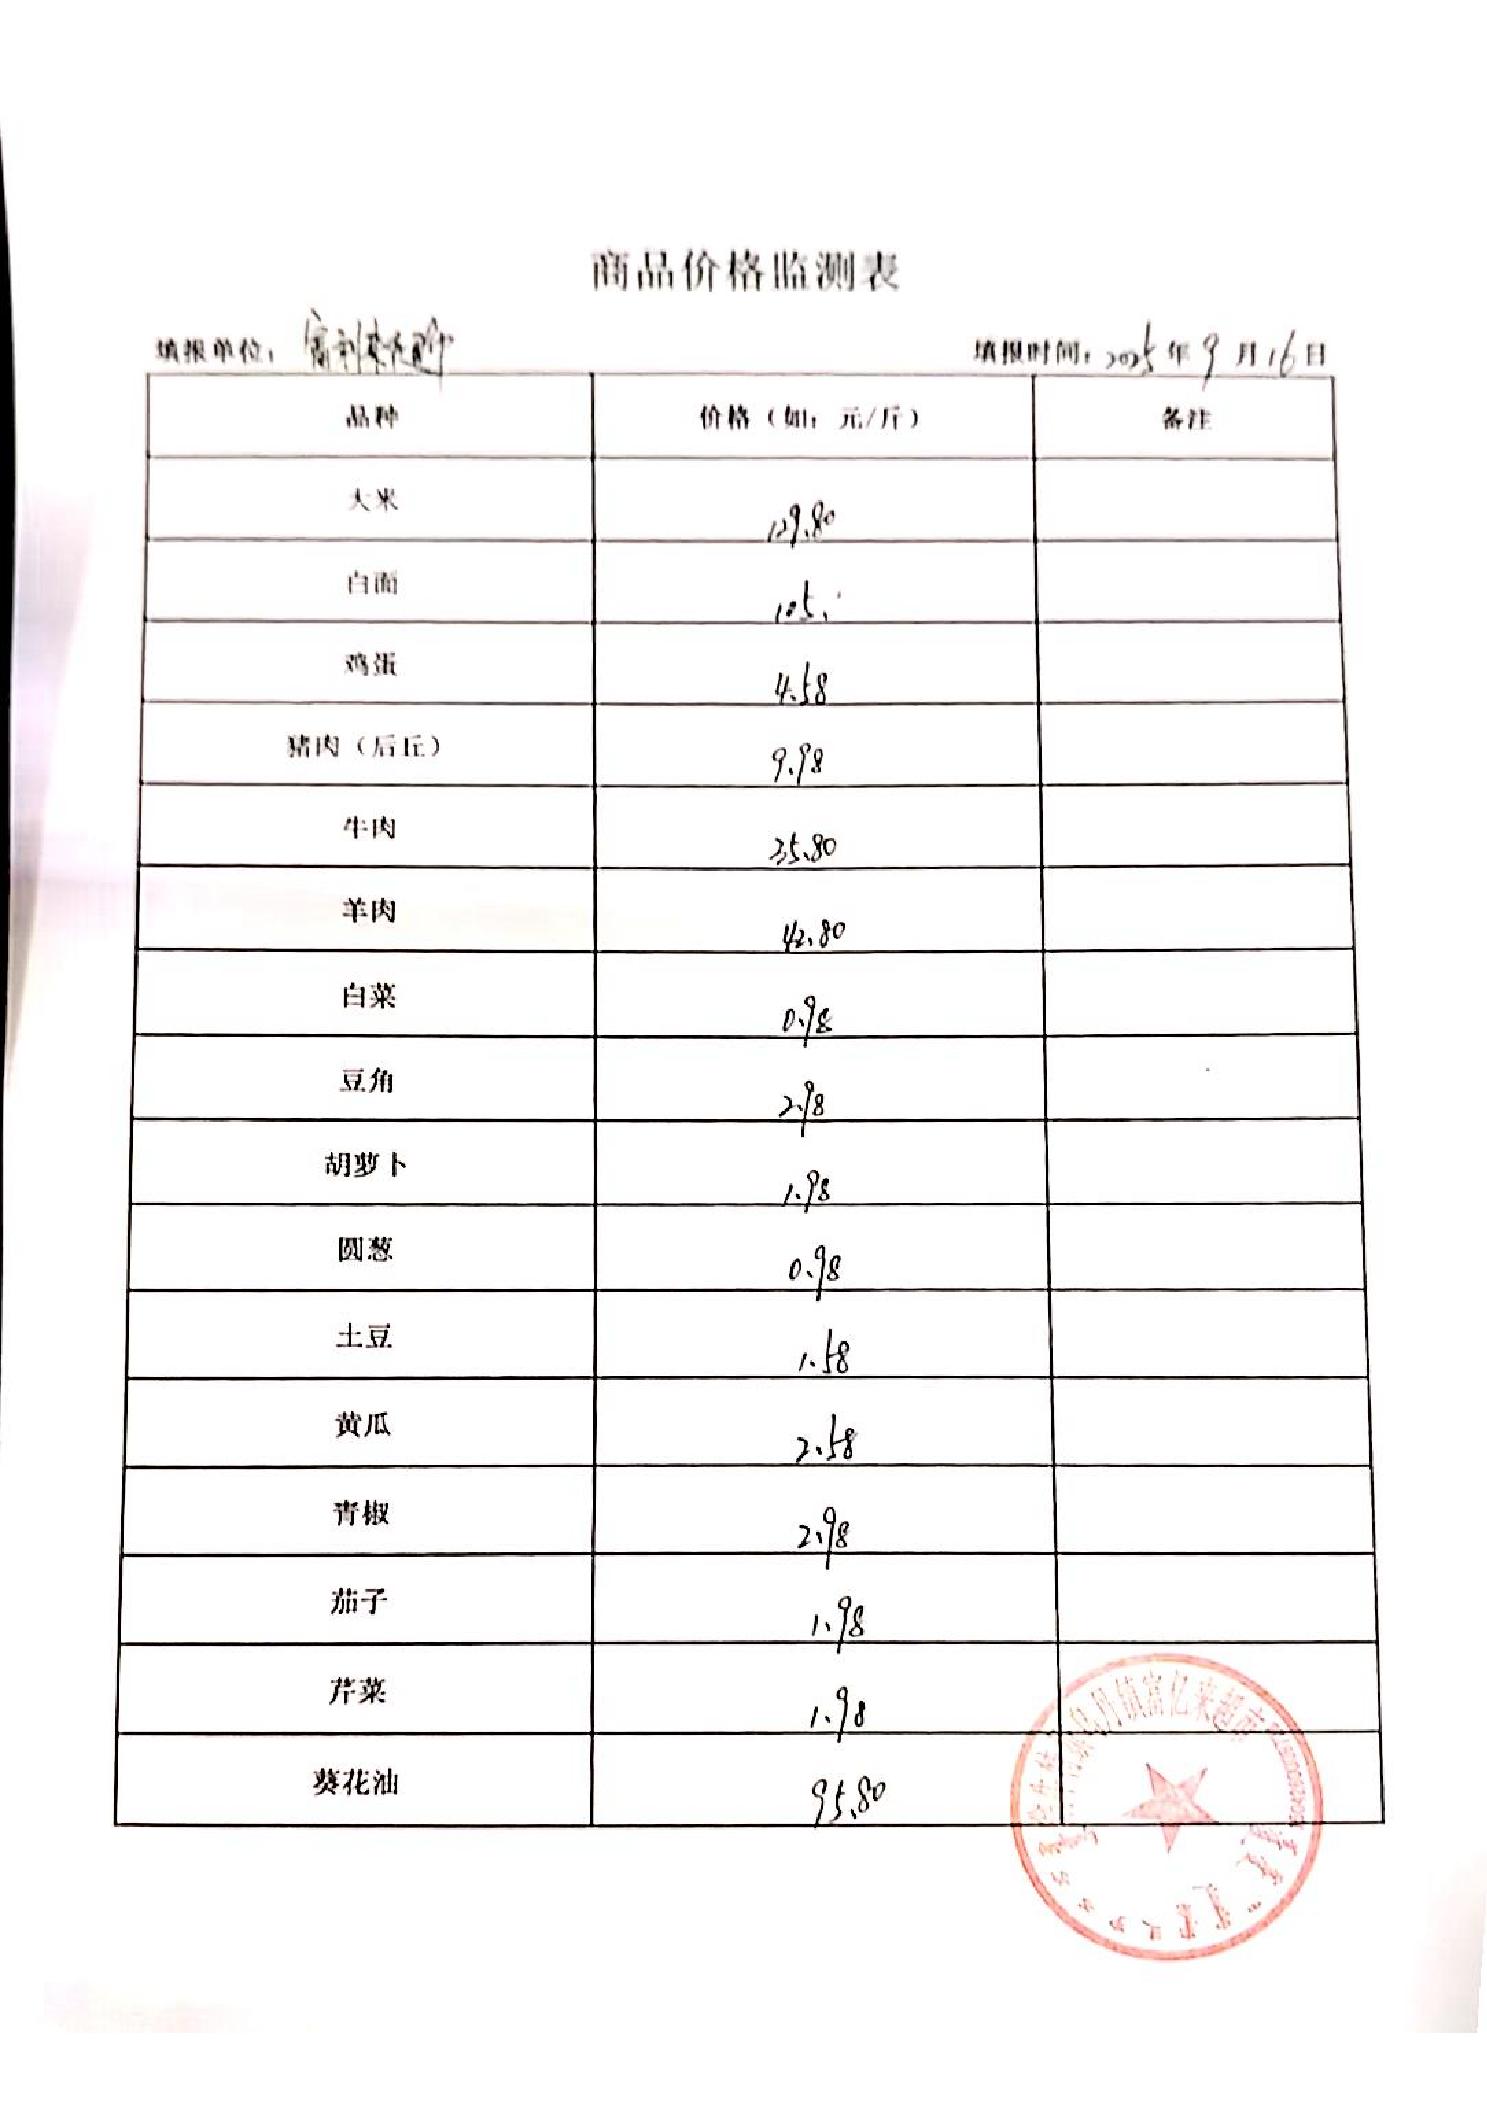 商品价格监测表
填报单位： 富利来超市 填报时间：2025年9月16日
品种 价格（如：元/斤） 备注
大米 129.80
白面 105.
鸡蛋 4.58
猪肉（后丘） 9.98
牛肉 35.80
羊肉 42.80
白菜 0.98
豆角 2.98
胡萝卜 1.98
圆葱 0.98
土豆 1.58
黄瓜 2.58
青椒 2.98
茄子 1.98
芹菜 1.98
葵花油 95.80
乌丹镇富亿来超市